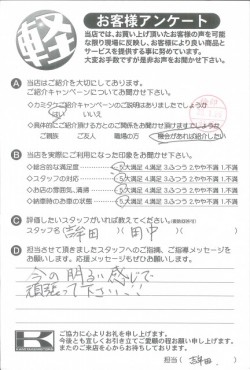 軽
お客様アンケート
当店では、お買い上げ頂いたお客様の声を可能
な限り現場に反映し、お客様により良い商品と
サービスを提供する事に努めています。
大変お手数ですが是非お声をお聞かせ下さい。
A 当店はご紹介を大切にしております。
ご紹介キャンペーンについてお聞かせ下さい。
ご紹介キャンペーンのご説明はありましたでしょうか
はい いいえ
ご家族 ご友人 職場の方 機会があれば紹介したい
B 当店を実際にご利用になった印象をお聞かせ下さい。
◇総合的な満足度 5.大満足 4.満足 3.ふつう 2.やや不満 1.不満
◇スタッフの対応 5.大満足 4.満足 3.ふつう 2.やや不満 1.不満
◇お店の雰囲気、清掃 5.大満足 4.満足 3.ふつう 2.やや不満 1.不満
◇納車時のお車の状態 5.大満足 4.満足 3.ふつう 2.やや不満 1.不満
C 評価したいスタッフがいれば教えてください。(複数回答可)
スタッフ名( 田)( 田中 )( )
D 担当させて頂きましたスタッフへのご指摘、ご指導メッセージを
お願いします。応援メッセージもぜひお願いします。
今の明るい感じで
頑張って下さい、、!
K
ご協力に心よりお礼を申し上げます。
今後とも宜しくお引き立てご愛顧の程お願い申し上げます。
またのご来店を心からお待ちしております。
担当( 田 )